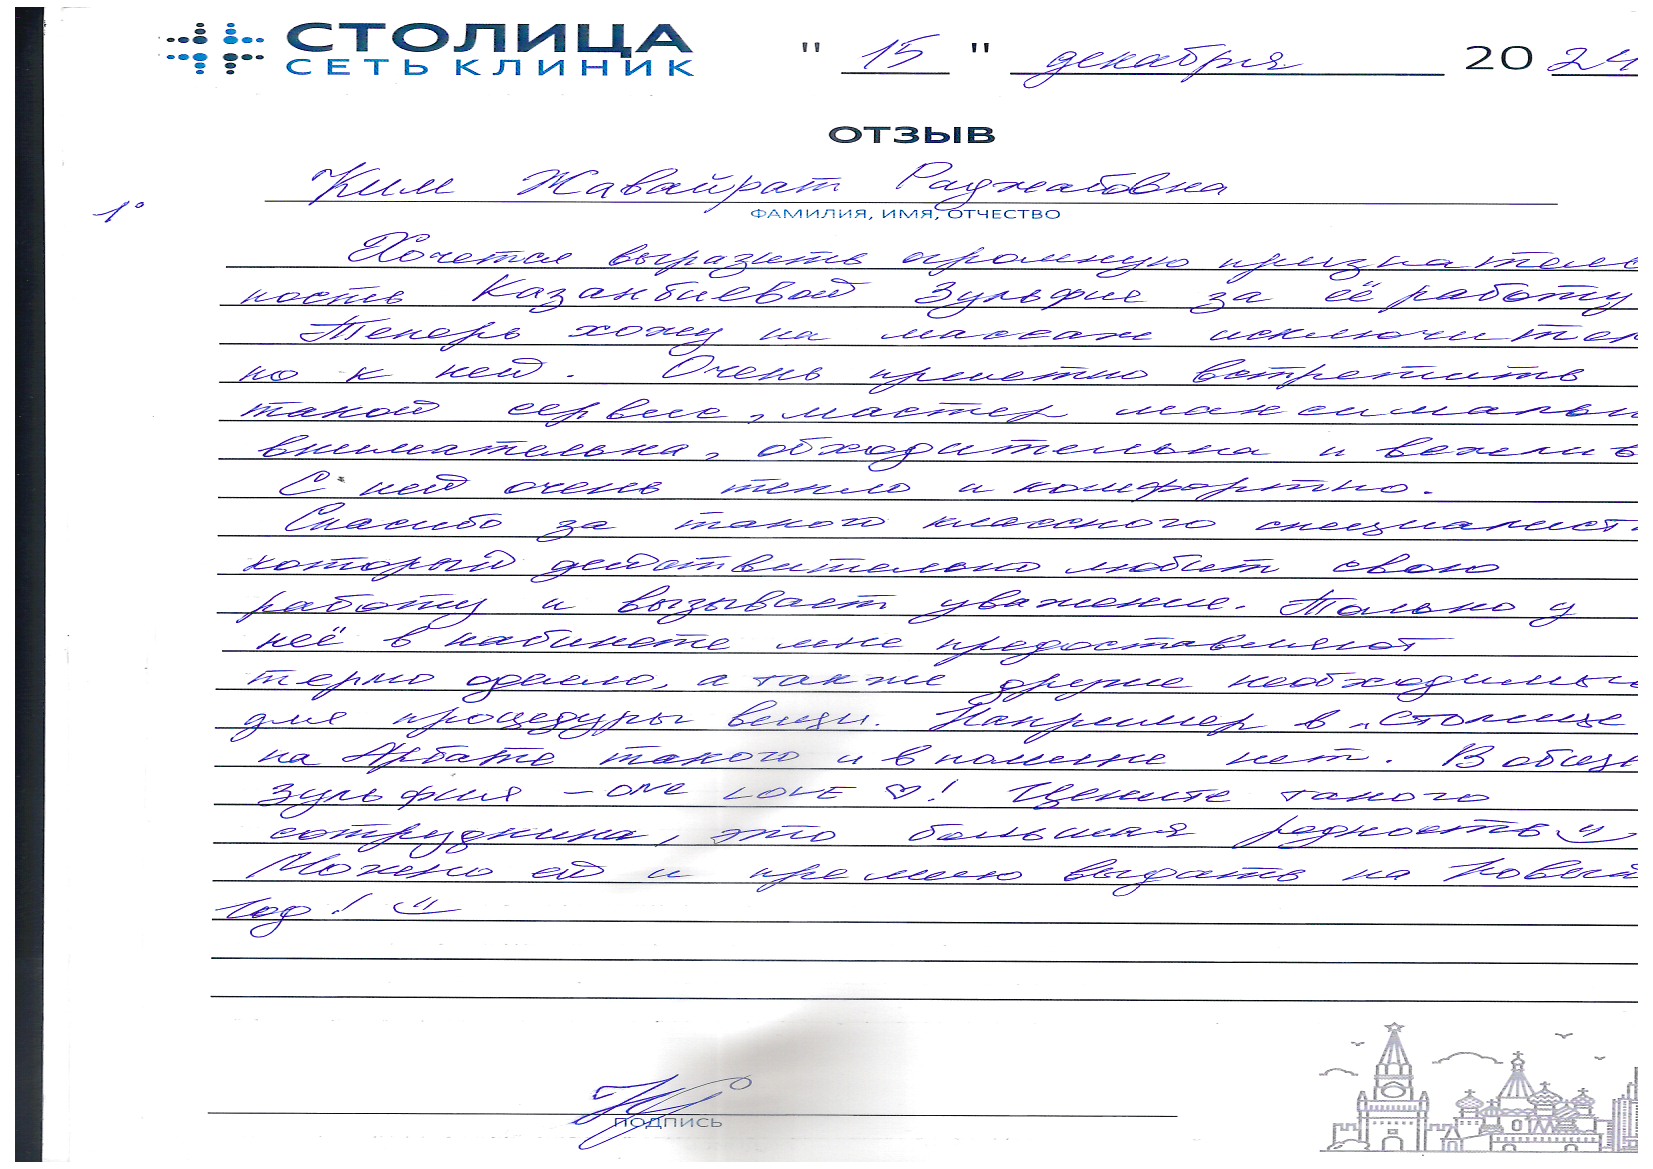 СТОЛИЦА
СЕТЬ КЛИНИК
" 15 " декабря 20 24
ОТЗЫВ
Ким Жавайрат Раджабовна
ФАМИЛИЯ, ИМЯ, ОТЧЕСТВО
1°
Хочется выразить огромную признатель
ность Казанбиевой Зульфие за её работу
Теперь хожу на массаж исключител
но к ней. Очень приятно встретить
такой сервис, мастер максимальн
внимательна, обходительна и вежлив
С ней очень тепло и комфортно.
Спасибо за такого классного специалист
который действительно любит свою
работу и вызывает уважение. Только у
неё в кабинете мне предоставляют
термо одеяло, а также другие необходимы
для процедуры вещи. Например в "Столице
на Арбате такого и в помине нет. В общем
Зульфия - ONE LOVE ♡! Цените такого
сотрудника, это большая редкость
Можно ей и премию выдать на Новый
Год!
ПОДПИСЬ